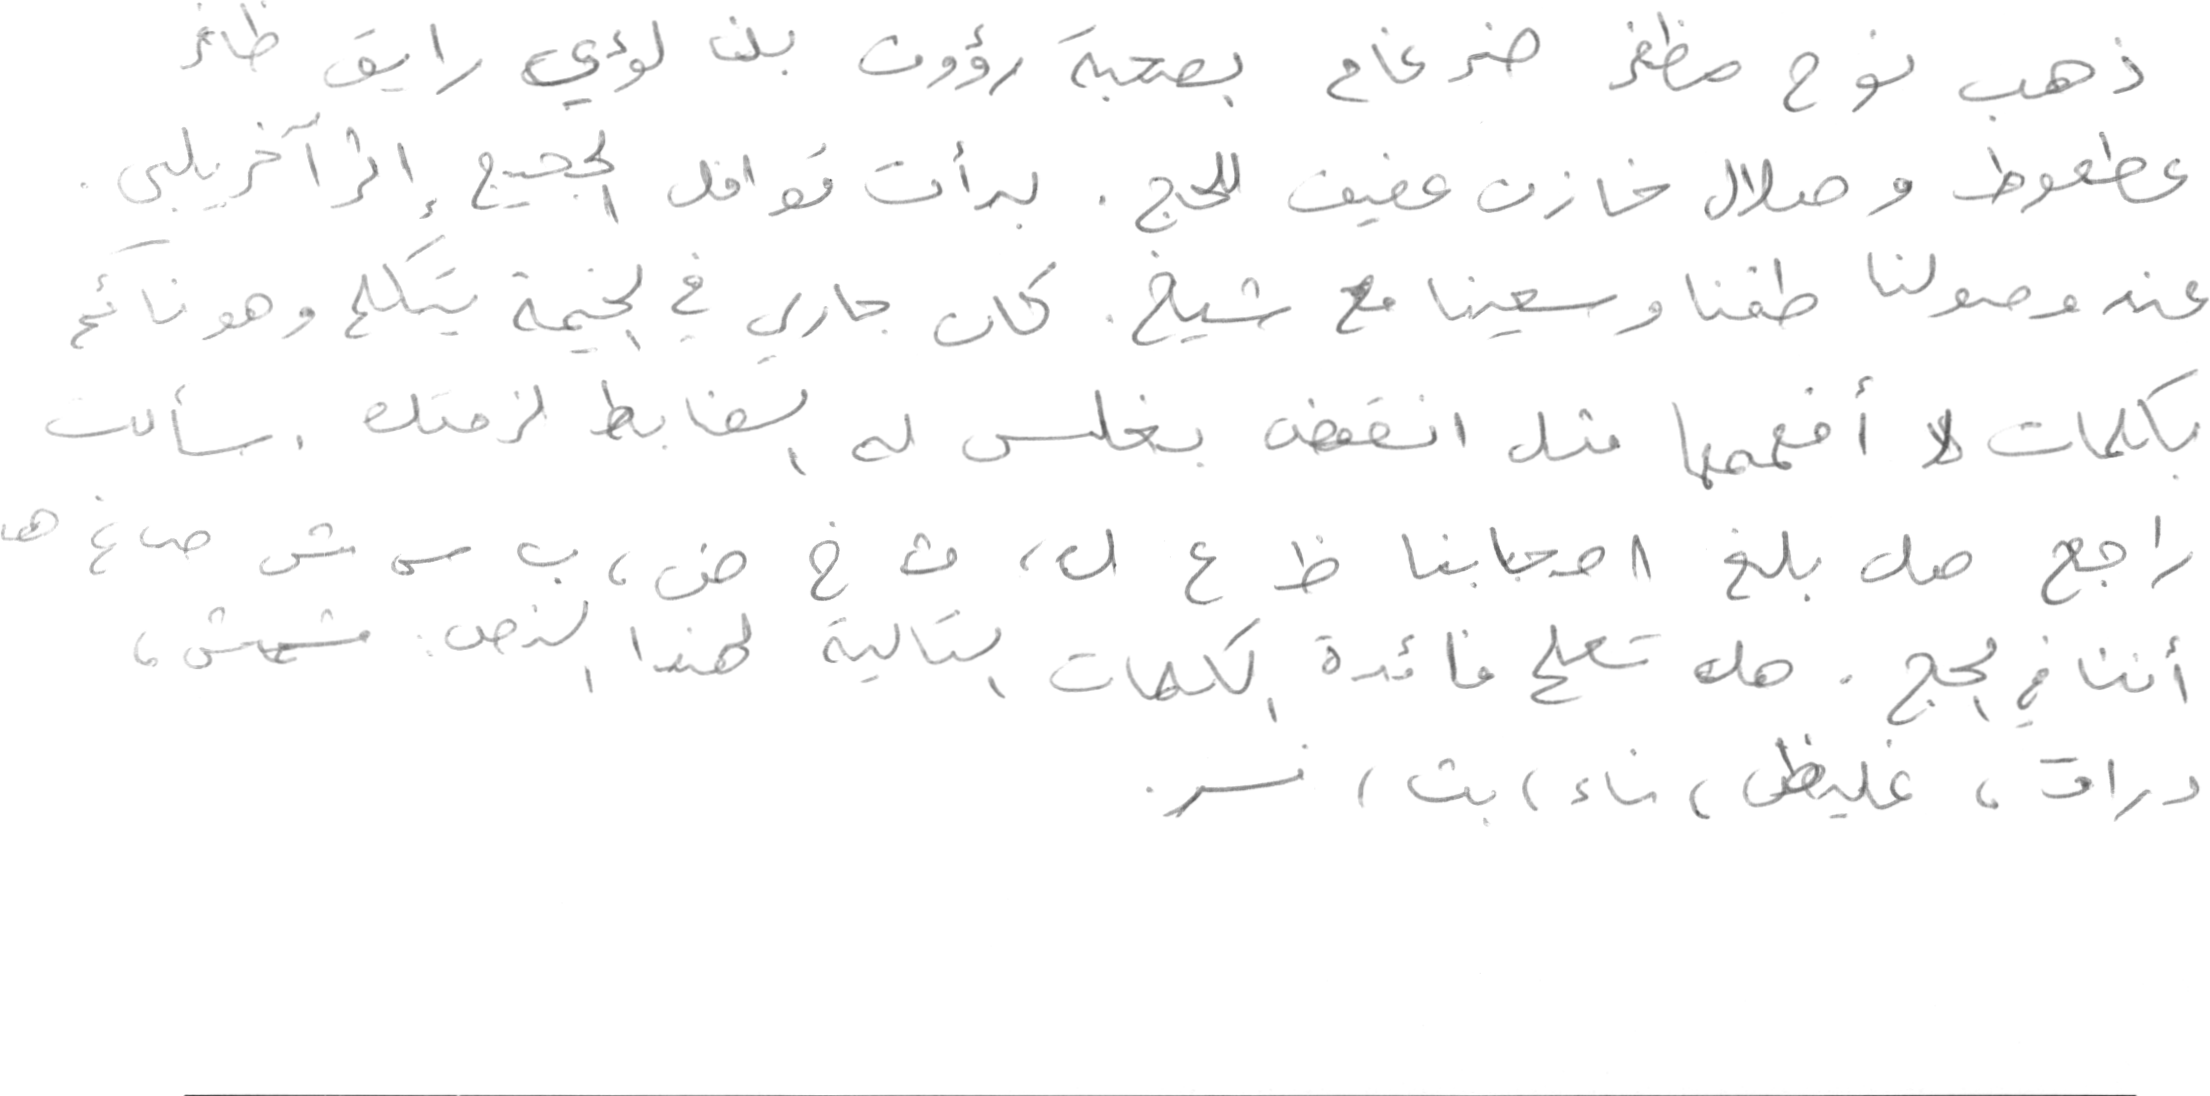 ذهب نوح مظفر ضرغام بصحبة رؤوف بلف لؤي رايق ظافر
عطعوط وهلال خازن عفيف للحج . بدأت قوافل الحجيج إثر آخر يلبي .
عند وصولنا طفنا وسعينا مع شيخ . كان جاري في الخيمة يتكلم وهو نائم
بكلمات لا أفهمها مثل انقضف بغلس له الضابط لزمتك . سألت
راجح هل بلغ اصحابنا ظ ع ل، ث خ ض، ب س ش صاغ ه
أننا في الحج . هل تعلم فائدة الكلمات التالية لهذا النص: مشمش،
دراق، غليظ، ناء، بت، نسر.